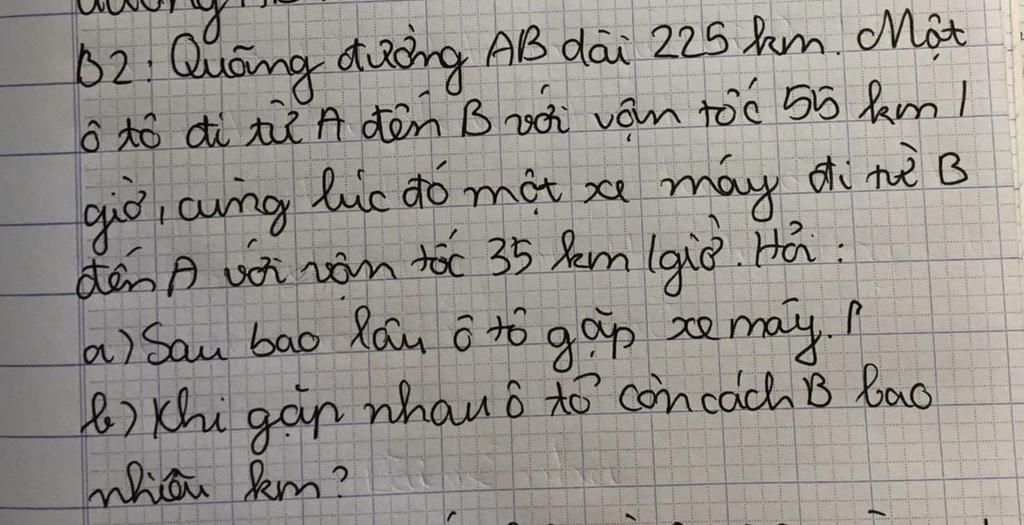 B2: Quãng đường AB dài 225 km. Một
ô tô đi từ A đến B với vận tốc 55 km /
giờ, cùng lúc đó một xe máy đi từ B
đến A với vận tốc 35 km /giờ. Hỏi :
a) Sau bao lâu ô tô gặp xe máy. ?
b) Khi gặp nhau ô tô còn cách B bao
nhiêu km?